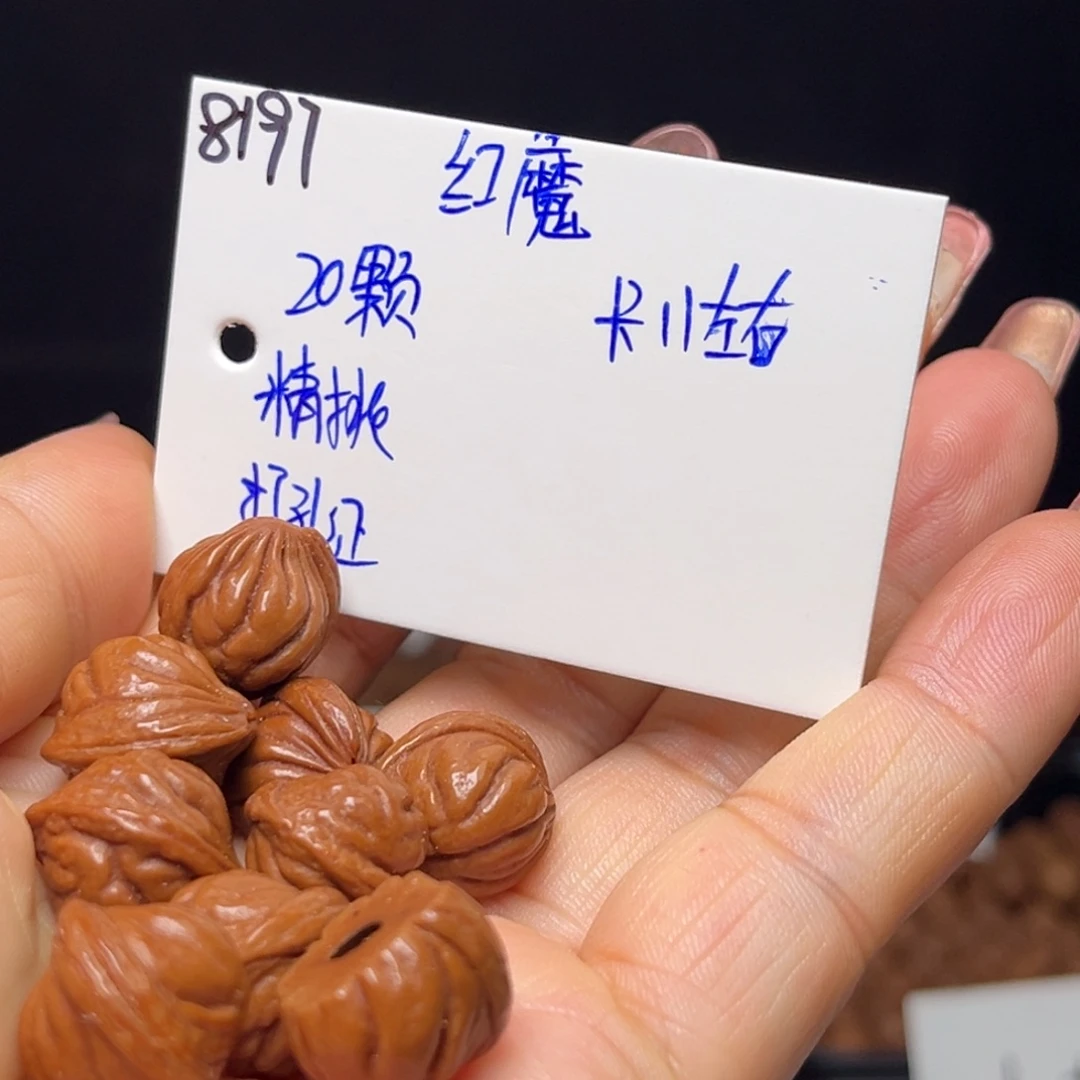 8197
红魔
20颗
卡11左右
精挑
打孔证